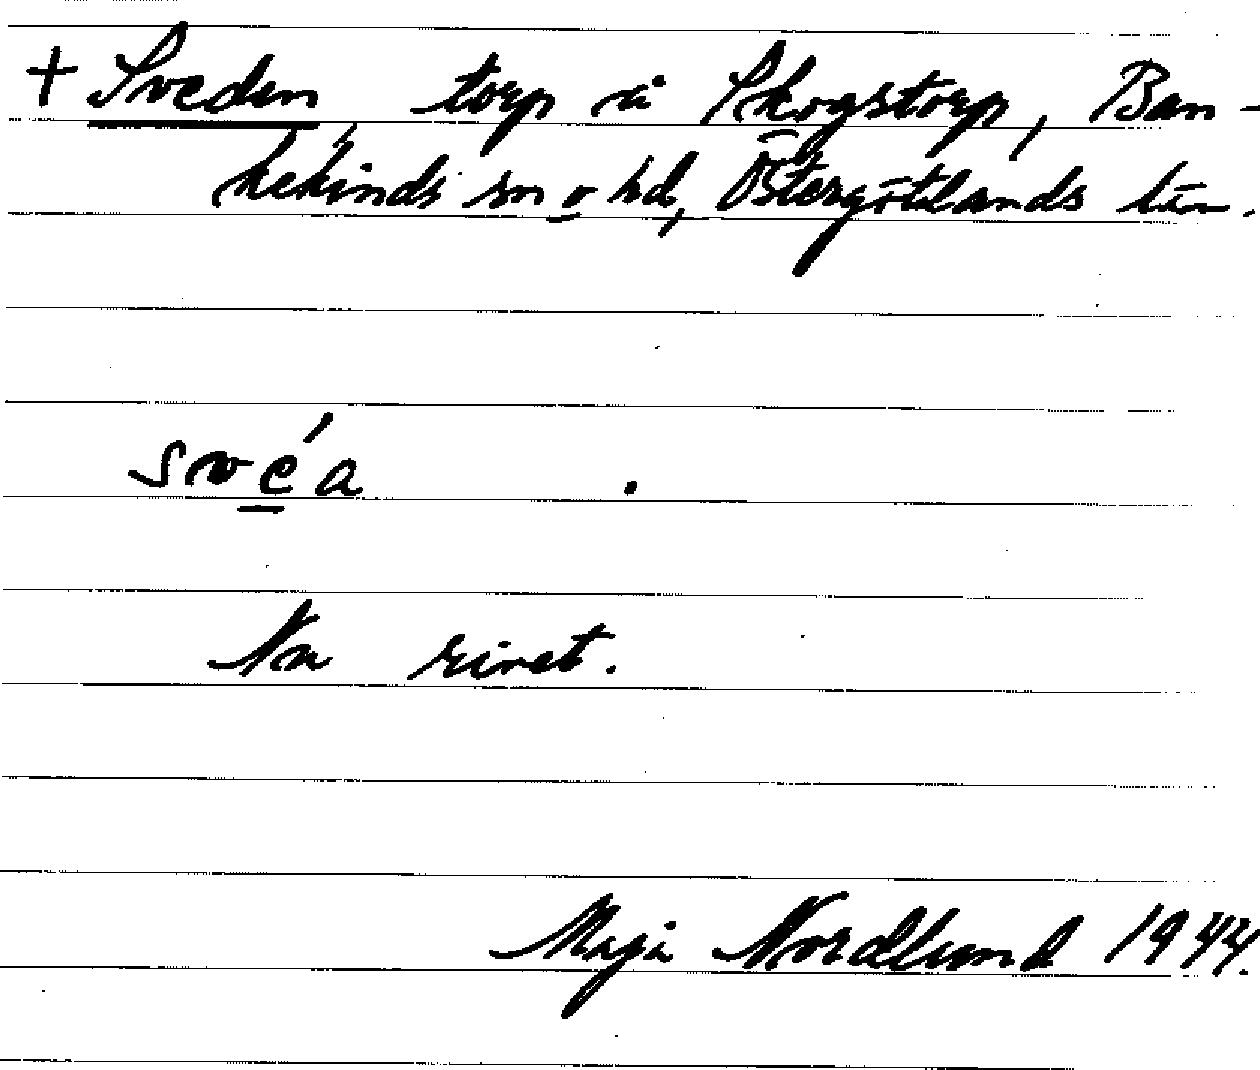 + Sveden torp å Skogstorp, Ban-
kekinds sn o hd, Östergötlands län.
svéa .
Nu rivet.
Maja Nordlund 1944.